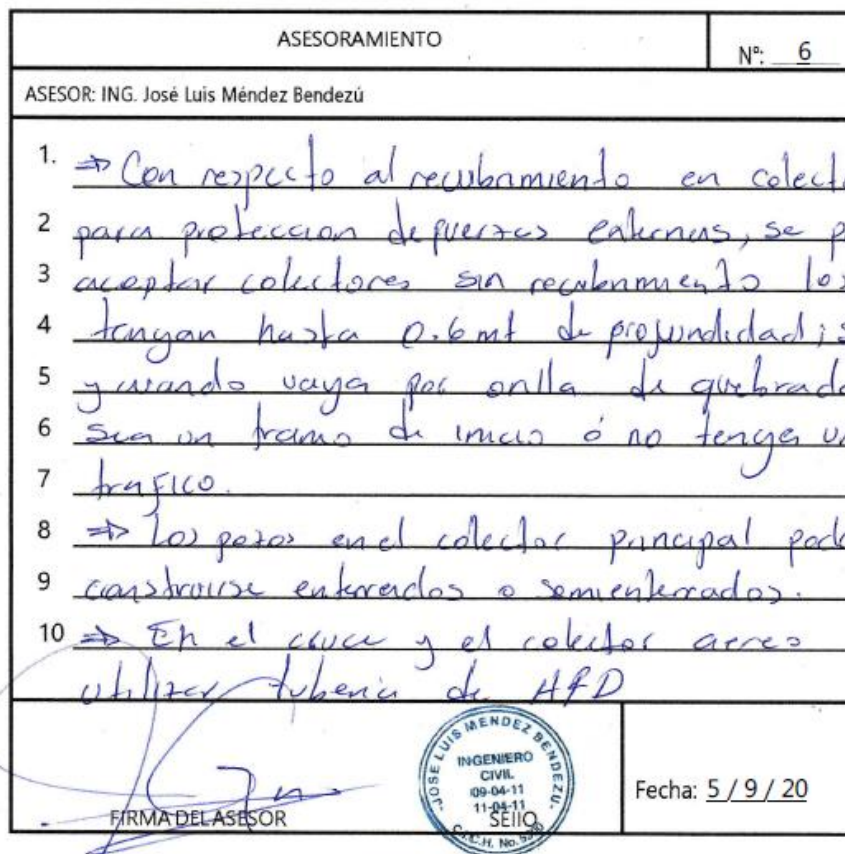 ASESORAMIENTO
Nº: 6
ASESOR: ING. José Luis Méndez Bendezú
1. ⇒ Con respecto al recubrimiento en colect
2 para proteccion de fuerzas externas, se p
3 aceptar colectores sin recubrimiento los
4 tengan hasta 0.6 mt de profundidad; s
5 y cuando vaya por orilla de quebrada
6 sea un tramo de inicio ó no tenga un
7 trafico.
8 ⇒ Los pozos en el colector principal pod
9 construirse enterrados o semienterrados.
10 ⇒ En el cruce y el colector aereo
utilizar tuberia de HFD
FIRMA DEL ASESOR
JOSE LUIS MENDEZ BENDEZU
INGENIERO
CIVIL
09-04-11
11-04-11
SEllO
C.I.C.H. No.
Fecha: 5 / 9 / 20